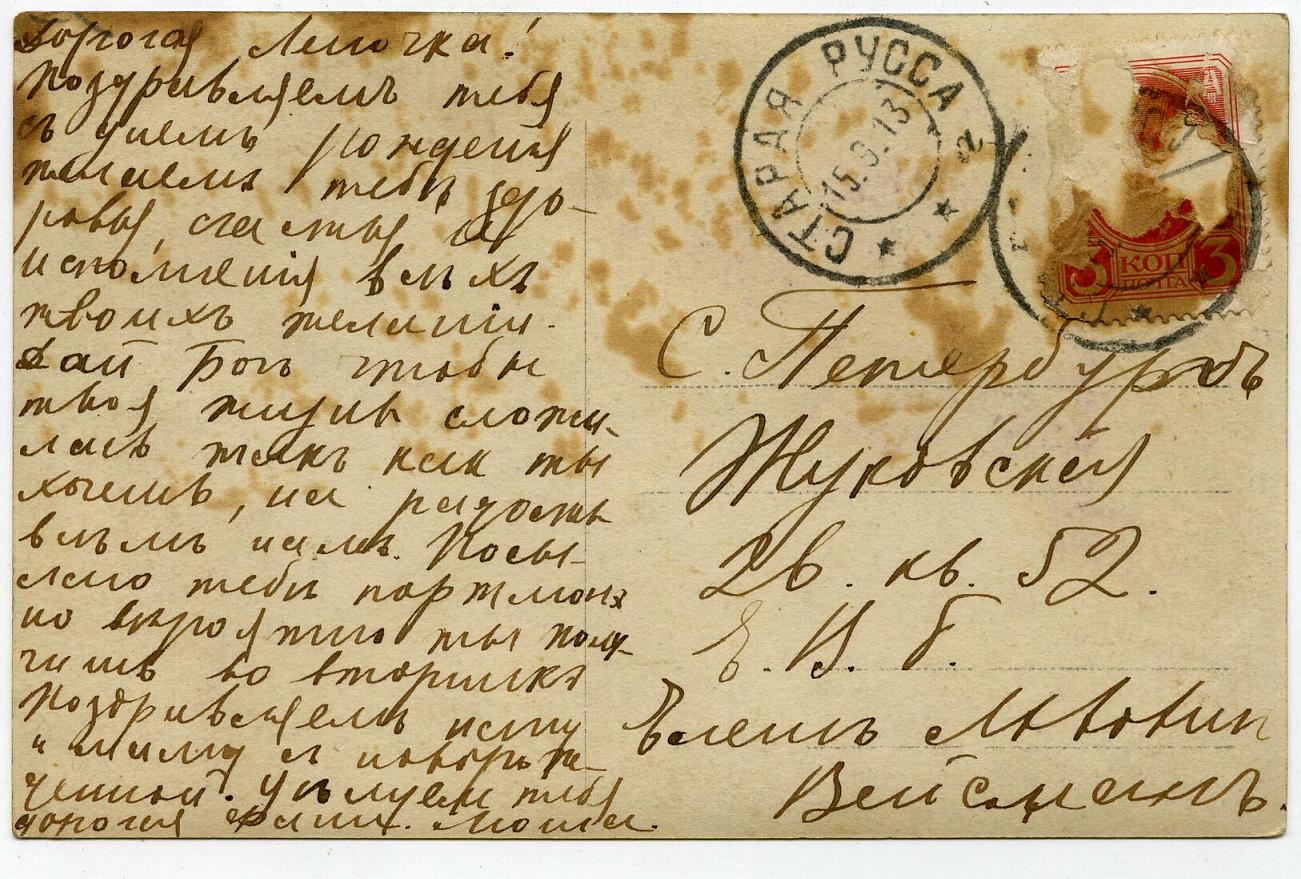 Дорогая Леночка!
Поздравляемъ тебя
съ днемъ рожденія
желаемъ тебѣ здо-
ровья, счастья
исполненія всѣхъ
твоихъ желаній.
Дай Богъ чтобы
твоя жизнь сложи-
лась такъ какъ ты
хочешь, на радость
всѣмъ намъ. Посы-
лаю тебѣ портмонэ
но вѣроятно ты полу-
чишь во вторникъ
Поздравляемъ папу
и маму съ новорож-
денной. Цѣлуемъ тебя
дорогая
СТАРАЯ РУССА
15.9.13
2
3 КОП 3
ПОЧТА
С. Петербургъ
Жуковская
28. кв. 52.
Е. В. Б.
Еленѣ Львовнѣ
Вейсманъ.